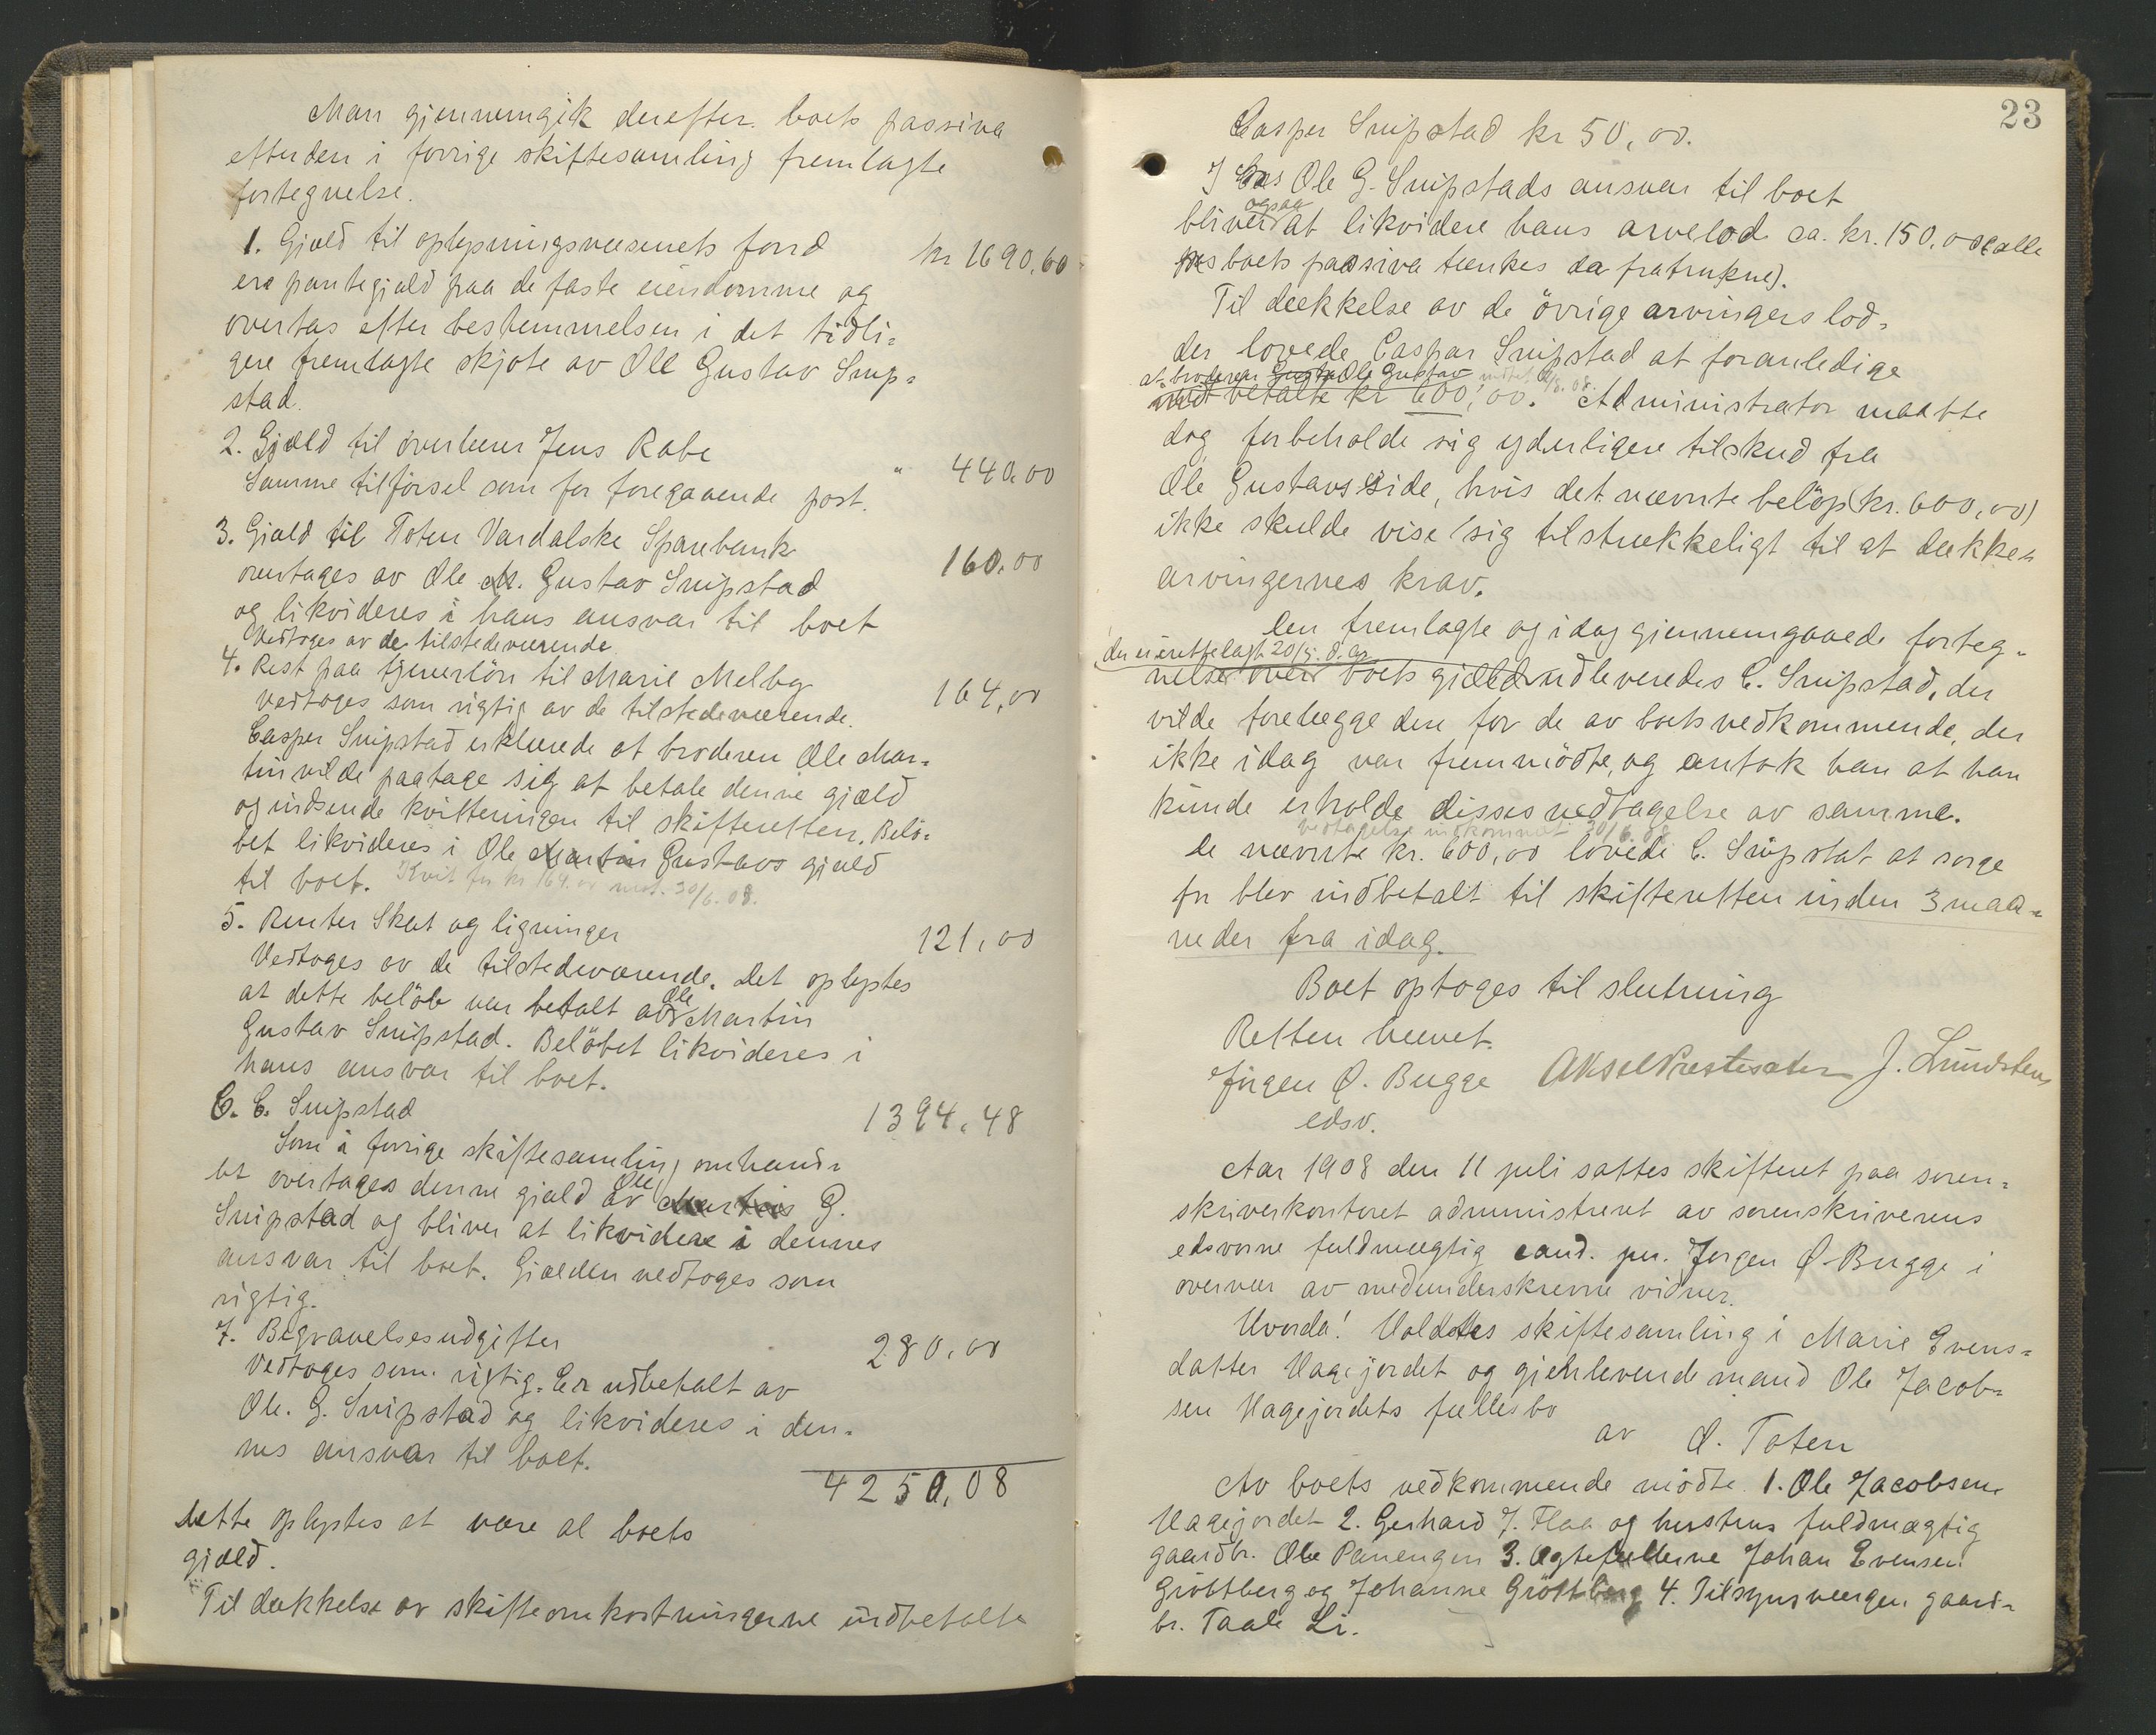 Man gjennemgik derefter boets passiva
efter den i forrige skiftesamling fremlagte
fortegnelse.
1. Gjæld til oplysningsvæsenets fond kr 1690,60
ere pantegjæld paa de faste eiendomme og
overtas efter bestemmelsen i det tidli-
gere fremlagte skjøte av Ole Gustav Snip-
stad.
2. Gjæld til overlærer Jens Rabe " 440,00
Samme tilförsel som for foregaaende post.
3. Gjæld til Toten Vardalske Sparebank 160,00
overtages av Ole M. Gustav Snipstad
og likvideres i hans ansvar til boet
Vedtoges av de tilstedeværende
4. Rest paa tjenerlön til Marie Melby 164,00
Vedtoges som rigtig av de tilstedeværende.
Casper Snipstad erklærede at broderen Ole Mar-
tin vilde paatage sig at betale denne gjæld
og indsende kvitteringen til skifteretten. Belö-
bet likvideres i Ole Martin Gustavs gjæld
til boet. Kvit for kr 164.00 mot. 30/6. 08.
5. Renter Skat og ligninger 121,00
Vedtoges av de tilstedeværende. Det oplystes
at dette belöb var betalt av Ole Martin
Gustav Snipstad. Belöbet likvideres i
hans ansvar til boet.
6. C. Snipstad 1394,48
Som i forrige skiftesamling omhand-
let overtages denne gjæld av Ole Martin G.
Snipstad og bliver at likvidere i dennes
ansvar til boet. Gjælden vedtoges som
rigtig.
7. Begravelsesudgifter 280,00
Vedtoges som rigtig. Er udbetalt av
Ole. G. Snipstad og likvideres i den-
nes ansvar til boet.
4250,08
Dette oplystes at være al boets
gjæld.
Til dækkelse av skifteomkostningerne indbetalte
23
Casper Snipstad kr 50,00.
I Ole G. Snipstads ansvar til boet
bliver ogsaa at likvidere hans arvelod ca. kr. 150,00 (alle
boets passiva tænkes da fratrukne).
Til dækkelse av de övrige arvingers lod-
der lovede Caspar Snipstad at foranledige
at broderen Ole Gustav
indbetalte kr 600,00. Administrator maatte
dog forbeholde sig yderligere tilskud fra
Ole Gustavs side, hvis det nævnte belöp (kr. 600,00)
ikke skulde vise sig tilstrækkeligt til at dække
arvingernes krav.
Den fremlagte og idag gjennemgaaede forteg-
der er irettelagt 20/5. d. a.
nelse over boets gjæld udleveredes C. Snipstad, der
vilde forelægge den for de av boets vedkommende, der
ikke idag var fremmödte, og antok han at han
kunde erholde disses vedtagelse av samme.
Vedtagelse indkommet 30/6. 08
De nævnte kr. 600,00 lovede C. Snipstat at sorge
for blev indbetalt til skifteretten inden 3 maa-
neder fra idag.
Boet optoges til slutning
Retten hævet.
Jörgen Ø. Bugge Aksel Prestesater J. Lundsten
edsv.
Aar 1908 den 11 juli sattes skifteret paa soren-
skriverkontoret administreret av sorenskriverens
edsvorne fuldmægtig cand. jur. Jörgen Ø. Bugge i
overvær av medunderskrevne vidner.
Hvorda! Holdtes skiftesamling i Marie Evens-
datter Hagejordet og gjenlevende mand Ole Jacob-
sen Hagejordets fællesbo
av Ø. Toten
Av boets vedkommende mödte 1. Ole Jacobsen
Hagejordet 2. Gerhard J. Flaa og hustrus fuldmægtig
gaardbr. Ole Panengen 3. Ægtefællerne Johan Evensen
Gröttberg og Johanne Gröttberg 4. Tilsynsværgen gaard-
br. Taale Li.